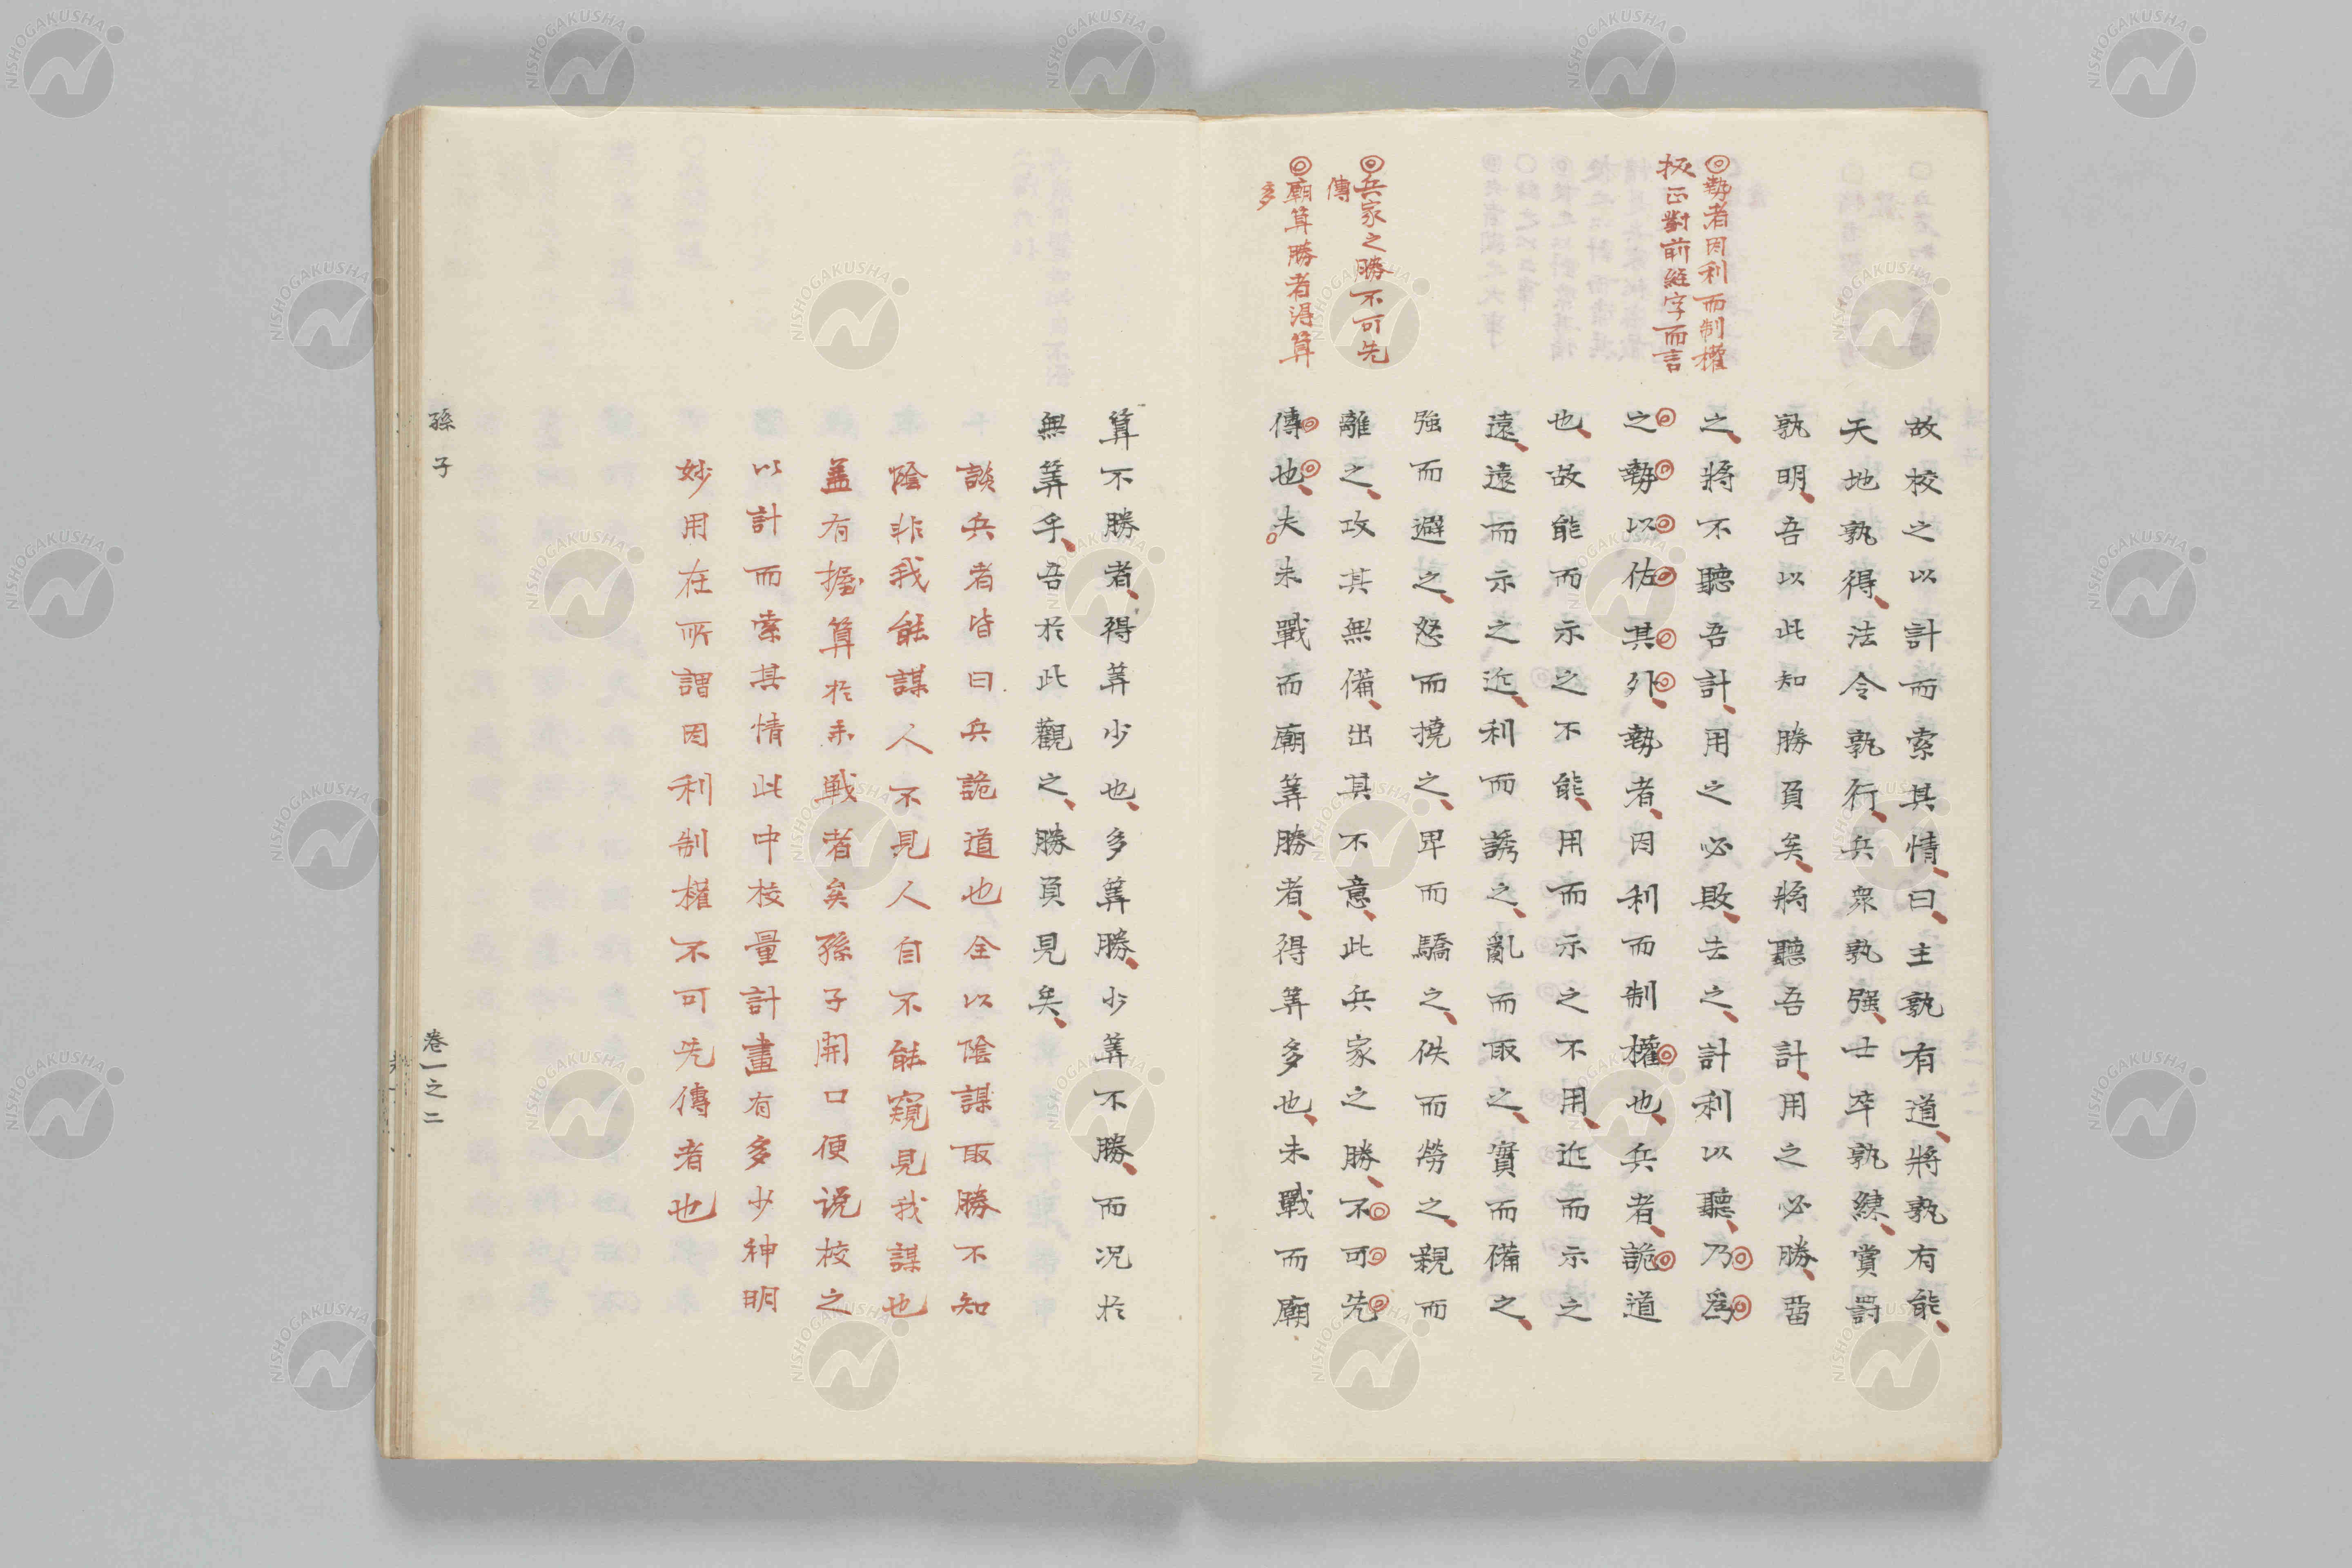 ◎勢者因利而制權
扳正對前經字而言
◎兵家之勝不可先
傳
◎廟算勝者得算
多
故校之以計而索其情、曰、主孰有道、將孰有能、
天地孰得、法令孰行、兵衆孰强、士卒孰練、賞罰
孰明、吾以此知勝負矣、將聽吾計、用之必勝、畱
之、將不聽吾計、用之必敗、去之、計利以聽、乃爲
之勢以佐其外、勢者、因利而制權也、兵者、詭道
也、故能而示之不能、用而示之不用、近而示之
遠、遠而示之近、利而誘之、亂而取之、實而備之、
强而避之、怒而撓之、卑而驕之、佚而勞之、親而
離之、攻其無備、出其不意、此兵家之勝、不可先
傳也、夫未戰而廟筭勝者、得筭多也、未戰而廟
筭不勝者、得筭少也、多筭勝、少筭不勝、而况於
無筭乎、吾於此觀之、勝負見矣、
談兵者皆曰兵詭道也全以陰謀取勝不知
陰非我能謀人不見人自不能窺見我謀也
盖有握算於未戰者矣孫子開口便説校之
以計而索其情此中校量計畫有多少神明
妙用在所謂因利制權不可先傳者也
孫子
卷一之二
NISHOGAKUSHA